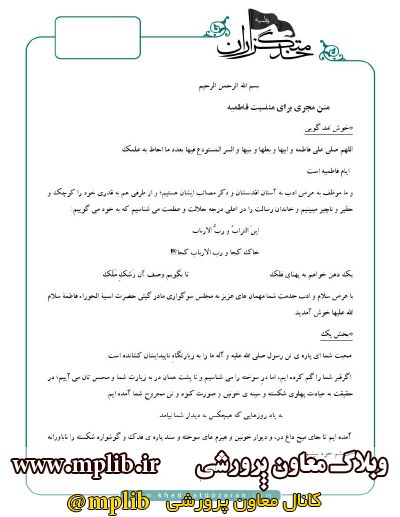 فاطمیه
خدمتگزاران
بسم الله الرحمن الرحیم
متن مجری برای مناسبت فاطمیه
خوش امد گویی
اللهم صلی علی فاطمه و ابیها و بعلها و بنیها و السر المستودع فیها بعدد ما احاط به علمک
ایام فاطمیه است
و ما موظف به عرض ادب به آستان اقدسشان و ذکر مصائب ایشان هستیم؛ و از طرفی هم به قدری خود را کوچک و
حقیر و ناچیز میبینیم و خاندان رسالت را در اعلی درجه جلالت و عظمت می شناسیم که به خود می گوییم:
این التراب و رب الارباب
خاک کجا و رب الارباب کجا؟!!
یک دهن خواهم به پهنای فلک تا بگویم وصف آن رشک ملک
با عرض سلام و ادب خدمت شما مهمان های عزیز به مجلس سوگواری مادر گیتی حضرت انسیة الحوراء فاطمة سلام
الله علیها خوش آمدید.
بخش یک
محبت شما ای پاره ی تن رسول صلی الله علیه و آله ما را به زیارتگاه ناپیدایتان کشانده است.
اگرقبر شما را گم کرده ایم، اما در سوخته را می شناسیم و تا پشت همان در به زیارت شما و محسن تان می آییم؛ در
حقیقت به عیادت پهلوی شکسته و سینه ی خونین و صورت کبود و تن مجروح شما آمده ایم.
به یاد روزهایی که هیچکس به دیدار شما نیامد.
آمده ایم تا جای میخ داغ در، و دیوار خونین و هیزم های سوخته و سند پاره ی فدک و گوشواره شکسته را ناباورانه
وبلاگ معاون پرورشی www.mplib.ir
کانال معاون پرورشی mplib@